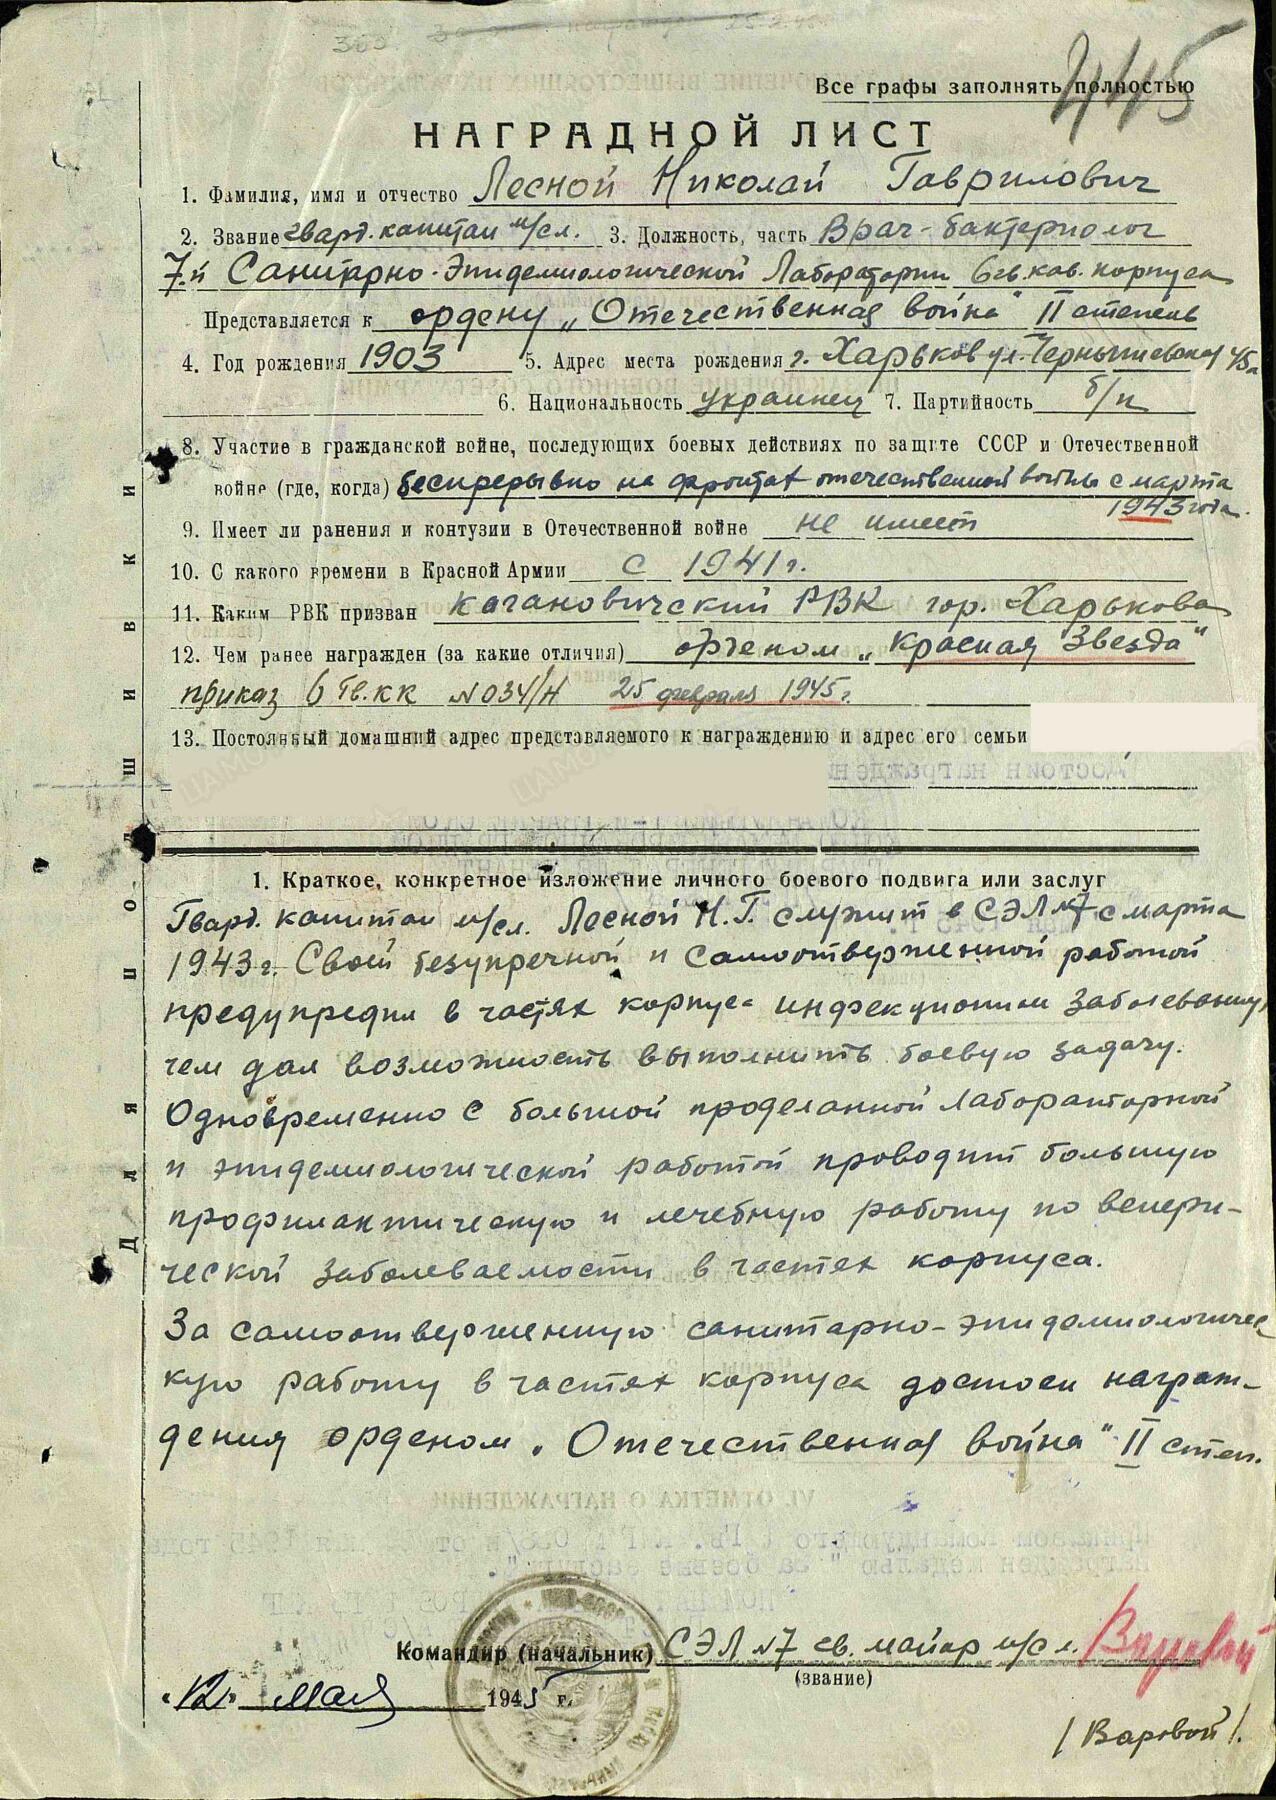 Все графы заполнять полностью
445
НАГРАДНОЙ ЛИСТ
1. Фамилия, имя и отчество Лесной Николай Гаврилович
2. Звание гвард. капитан м/сл. 3. Должность, часть Врач-бактериолог
7-й Санитарно-Эпидемиологической Лаборатории 6 гв. кав. корпуса
Представляется к ордену „Отечественная война" II степень
4. Год рождения 1903 5. Адрес места рождения г. Харьков ул. Чернышевская 45а
6. Национальность украинец 7. Партийность б/п
8. Участие в гражданской войне, последующих боевых действиях по защите СССР и Отечественной
войне (где, когда) беспрерывно на фронтах отечественной войны с марта
1943 года.
9. Имеет ли ранения и контузии в Отечественной войне не имеет
10. С какого времени в Красной Армии с 1941 г.
11. Каким РВК призван Кагановичский РВК гор. Харькова
12. Чем ранее награжден (за какие отличия) орденом „Красная Звезда"
приказ 6 Гв.КК №034/Н 25 февраля 1945 г.
13. Постоянный домашний адрес представляемого к награждению и адрес его семьи
Для подшивки
1. Краткое, конкретное изложение личного боевого подвига или заслуг
Гвард. капитан м/сл. Лесной Н.Г. служит в СЭЛ №7 с марта
1943 г. Своей безупречной и самоотверженной работой
предупредил в частях корпуса инфекционные заболевания,
чем дал возможность выполнить боевую задачу.
Одновременно с большой проделанной лабораторной
и эпидемиологической работой проводит большую
профилактическую и лечебную работу по венери-
ческой заболеваемости в частях корпуса.
За самоотверженную санитарно-эпидемиологичес
кую работу в частях корпуса достоен награж-
дения орденом „Отечественная война" II степ.
Командир (начальник) СЭЛ №7 гв. майор м/сл.
(звание)
„12" мая 1945 г.
/Варовой/.